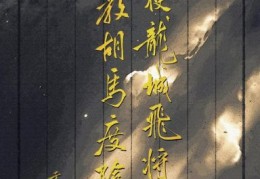 使龍城飛將
教胡馬度陰